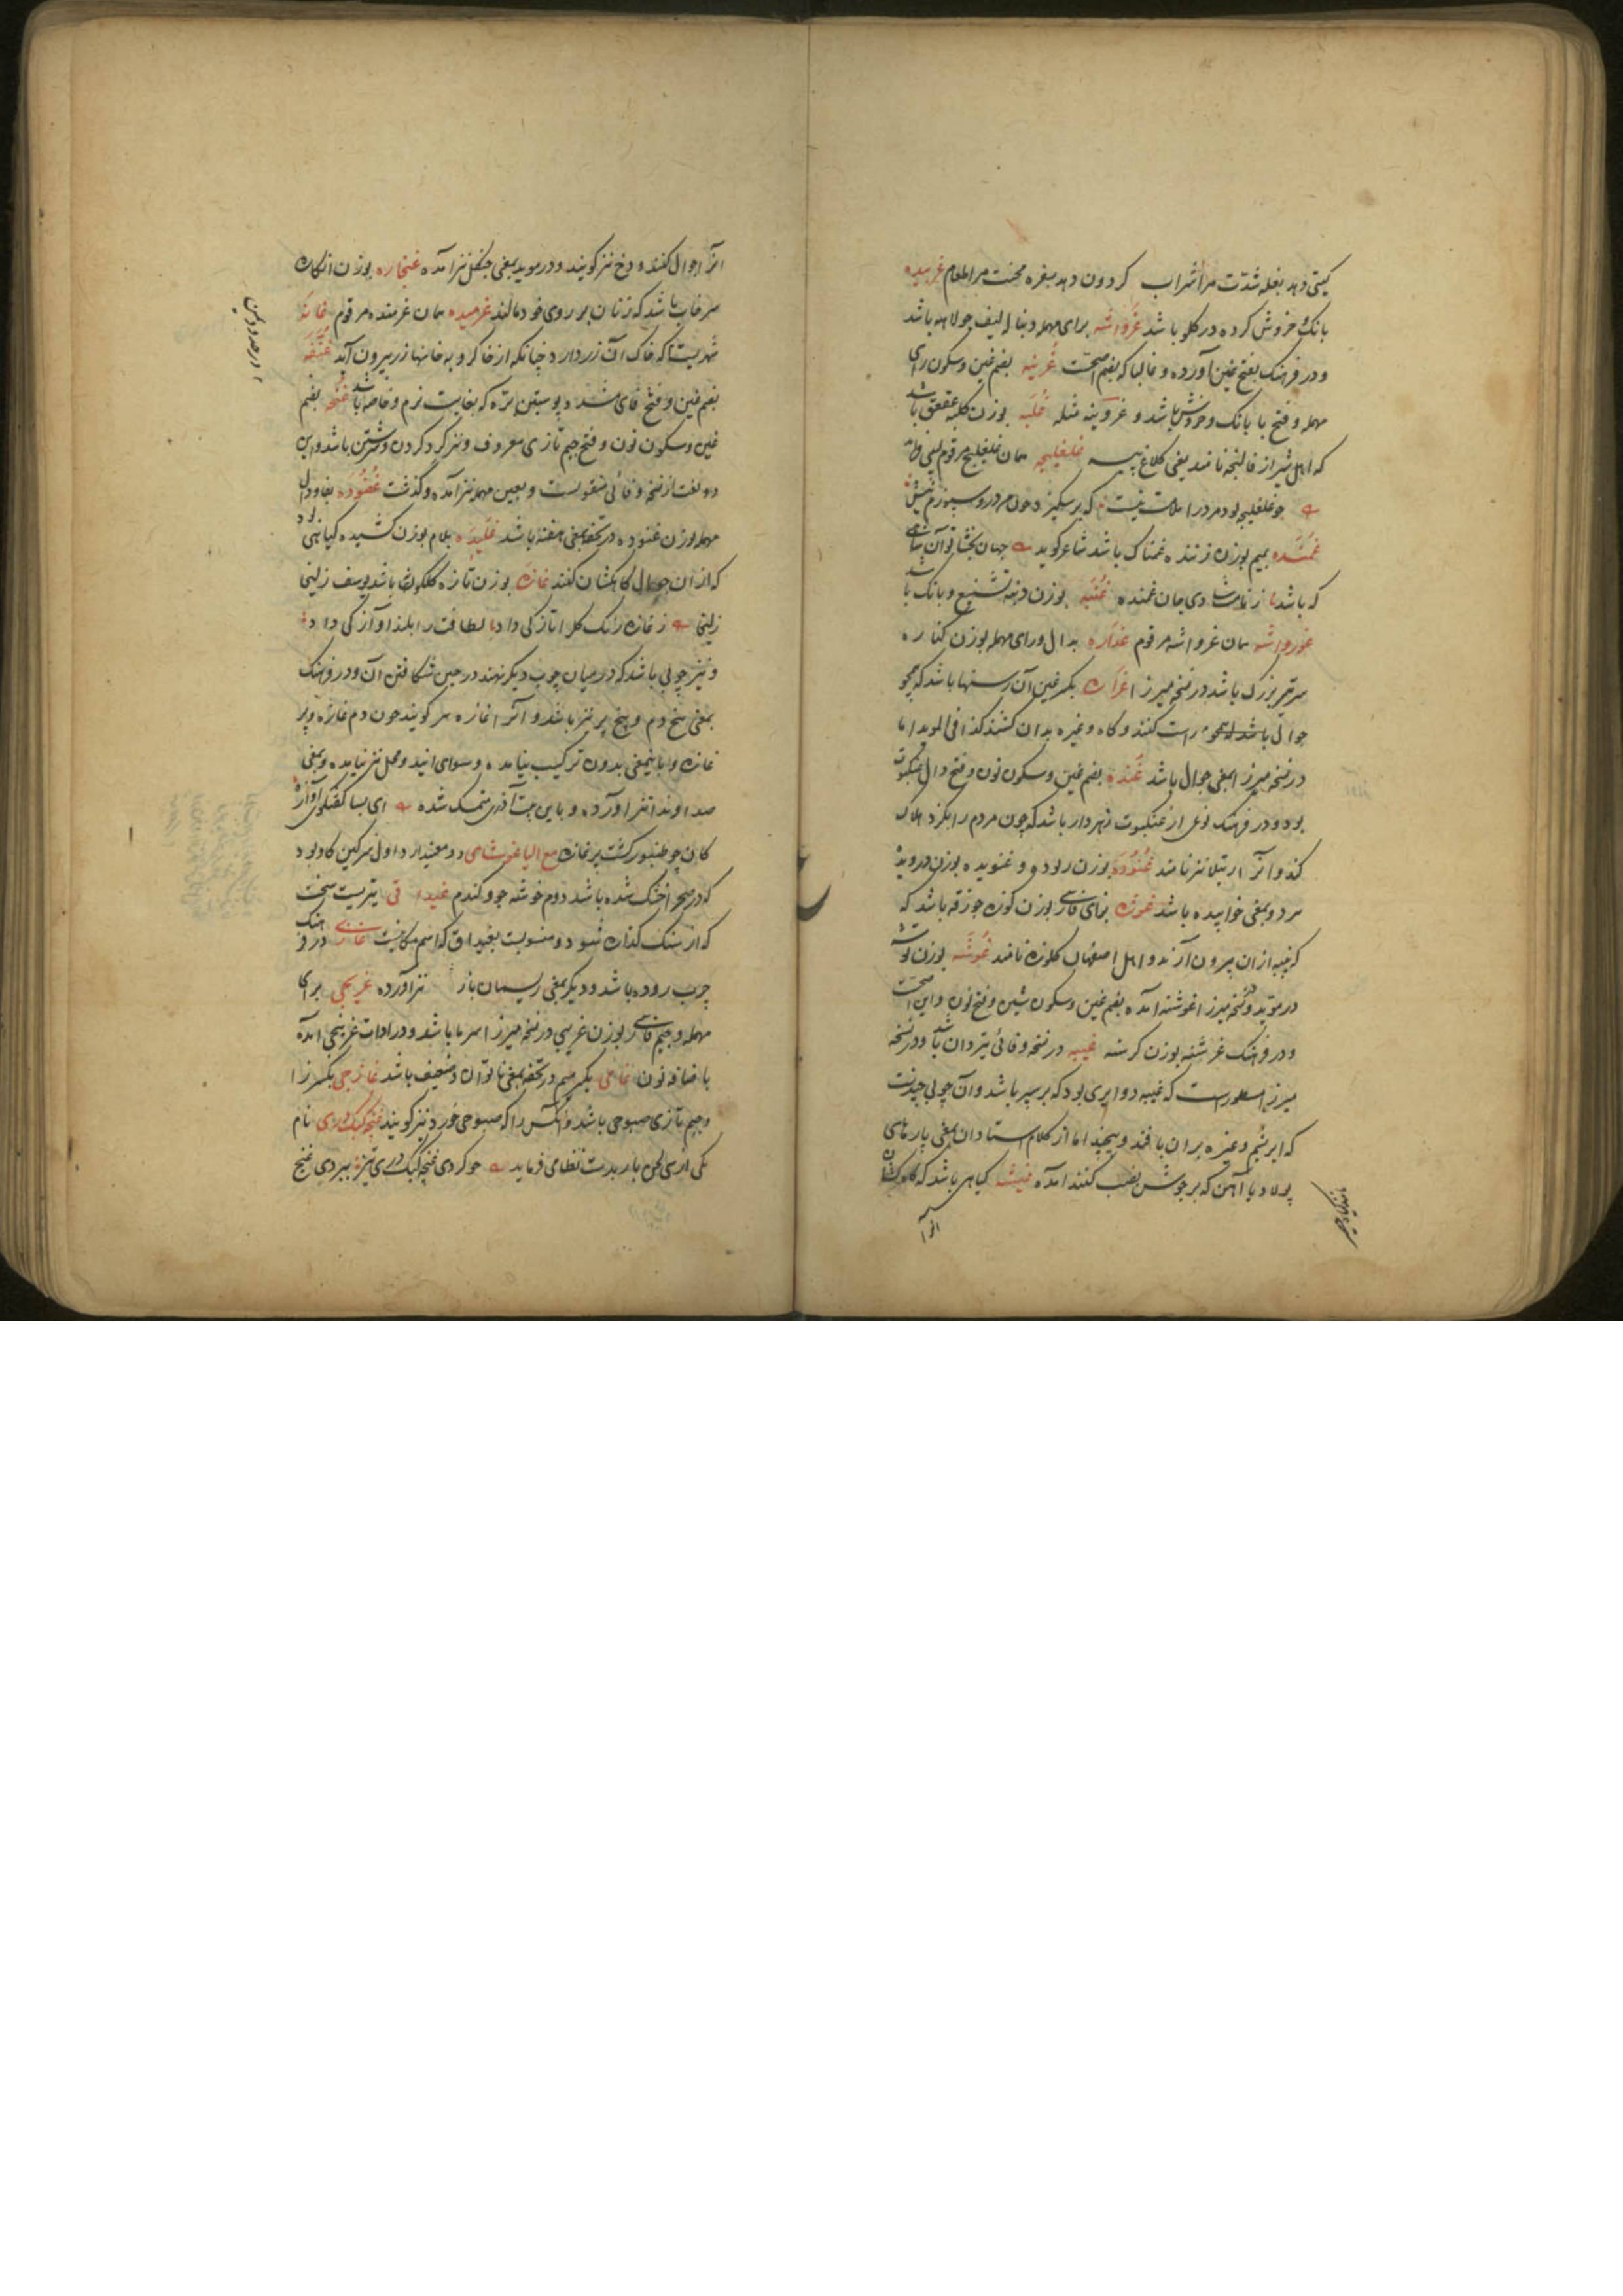 گیتی دهد بغله شدّت مرا شراب گردون دهد سفره محنت مرا طعام غریبده
بانک و خروش کرده در کلو باشد غرواشه برای مهمله دنباله لیف جولاهه باشد
و در فرهنک بفتح غین آورده و غالبا که بضم اصحّت غربنه بضم غین و سکون رای
مهمله و فتح با بانک و خروش باشد و غروبنه مثله غلبه بوزن کلبه عقعق باشد
که اهل شیراز قالنجه نامند یعنی کلاغ پیسه غلغلیچه همان غلغلیج مرقوم
چو غلغلیچه بود مرد را
غمنده بمیم بوزن زننده غمناک باشد شاعر گوید جهان بخشا توآن شاهی
که باشد ز نامت شادی جان غمنده غنبه بوزن دنبه تشنیع و بانک باشد
غورواشه همان غرواشه مرقوم غداره بدال و رای مهمله بوزن کناره
سرتیر بزرک باشد در نسخه میرزا غراره بکسر غین آن رسنها باشد که همچو
جوالی راست کنند و کاه و غیره بدان کشند کذا فی الموید اما
در نسخه میرزا بمعنی جوال باشد غنده بضم غین و سکون نون و فتح دال عنکبوت
بود و در فرهنک نوعی از عنکبوت زهردار باشد که چون مردم را بکزد هلاک
کند و آنرا رتیلا نیز نامند غنوده بوزن ربوده و غنویده بوزن درویده
مردو بمعنی خوابیده باشد غوزه بزای فارسی بوزن کوزه جوزقه باشد که
که پنبه ازان بیرون آرند و اهل اصفهان کلوزه نامند غوشه بوزن توشه
در موید و نسخه میرزا غوشنه آمده بضم غین و سکون شین و فتح نون و این اصحّت
و در فرهنک غرشنه بوزن کرسنه غیبه در نسخه وفائی تیردان باشد و در نسخه
میرزا مسطور است که غیبه دوایری بود که بر سپر باشد و آن چوبی چندست
که ابریشم و غیره بران بافند و پیچند اما از کلام استادان بمعنی پارهای
پولاد یا آهن که بر جوشن نصب کنند آمده غیشه کیاهی باشد که کاه کشان
انرا
انرا جوال کنند و دخ نیز کویند و در موید بمعنی جنکل نیز آمده غنجاره بوزن انکاره
سرخاب باشد که زنان بر روی خود مالند غرمیده همان غرمنده مرقوم غانه
شهریست که خاک آن زر دارد چنانکه از خاکروبه خانها زر بیرون آید غنفه
بضم غین و فتح فای مشدد پوستین بره که بغایت نرم و خاصه باشد غنجه بضم
غین و سکون نون و فتح جیم تازی معروف و نیز گرد کردن و سرشتن باشد و این
دو لغت از نسخه وفائی منقولست و بعین مهمله نیز آمده و گذشت غفوده بفا و دال
مهمله بوزن غنوده در تحفه بمعنی هفته باشد غلیده بلام بوزن کشیده کیاهی بود
که ازان جوال کاهکشان کنند غازه بوزن تازه کلکونه باشد یوسف زلیخا
زلیخا ز غازه رنک کل را تازکی داد لطافت را بلند آوازکی داد
و نیز چوبی باشد که در میان چوب دیکر نهند در حین شکافتن آن و در فرهنک
بمعنی بیخ دم و بیخ پر نیز باشد و آنرا غازه هم کویند چون دم غازه و پر
غازه و باینمعنی بدون ترکیب نیامده و سوای این دو محل نیز نیامده و بمعنی
صدا و ندا نیز آورده و باین بیت آذری متمسک شده ای بسا کفتکوی آوازه
کان چو طنبور کشت پر غازه مع الیا غوشای دو معنی دارد اول سرکین کاو بود
که در صحرا خشک شده باشد دوم خوشه جو و کندم غیداقی تیریست سخت
که از سنک کذاره شود و منسوبست بغیداق که اسم مکانیست غازی در فرهنک
چرب روده باشد و دیکر بمعنی ریسمان باز نیز آورده غریچی برای
مهمله و جیم فارسی بوزن غریبی در نسخه میرزا سرما باشد و در ادات غریبخی آمده
باضافه نون غامی بکسر میم در تحفه بمعنی ناتوان و ضعیف باشد غارجی بکسر را
و جیم تازی صبوحی باشد و آنکس را که صبوحی خورد نیز کویند غنچه کبک دری نام
یکی از سی لحن باربدست نظامی فرماید چو کردی غنچه کبک دری تیز ببردی غنج